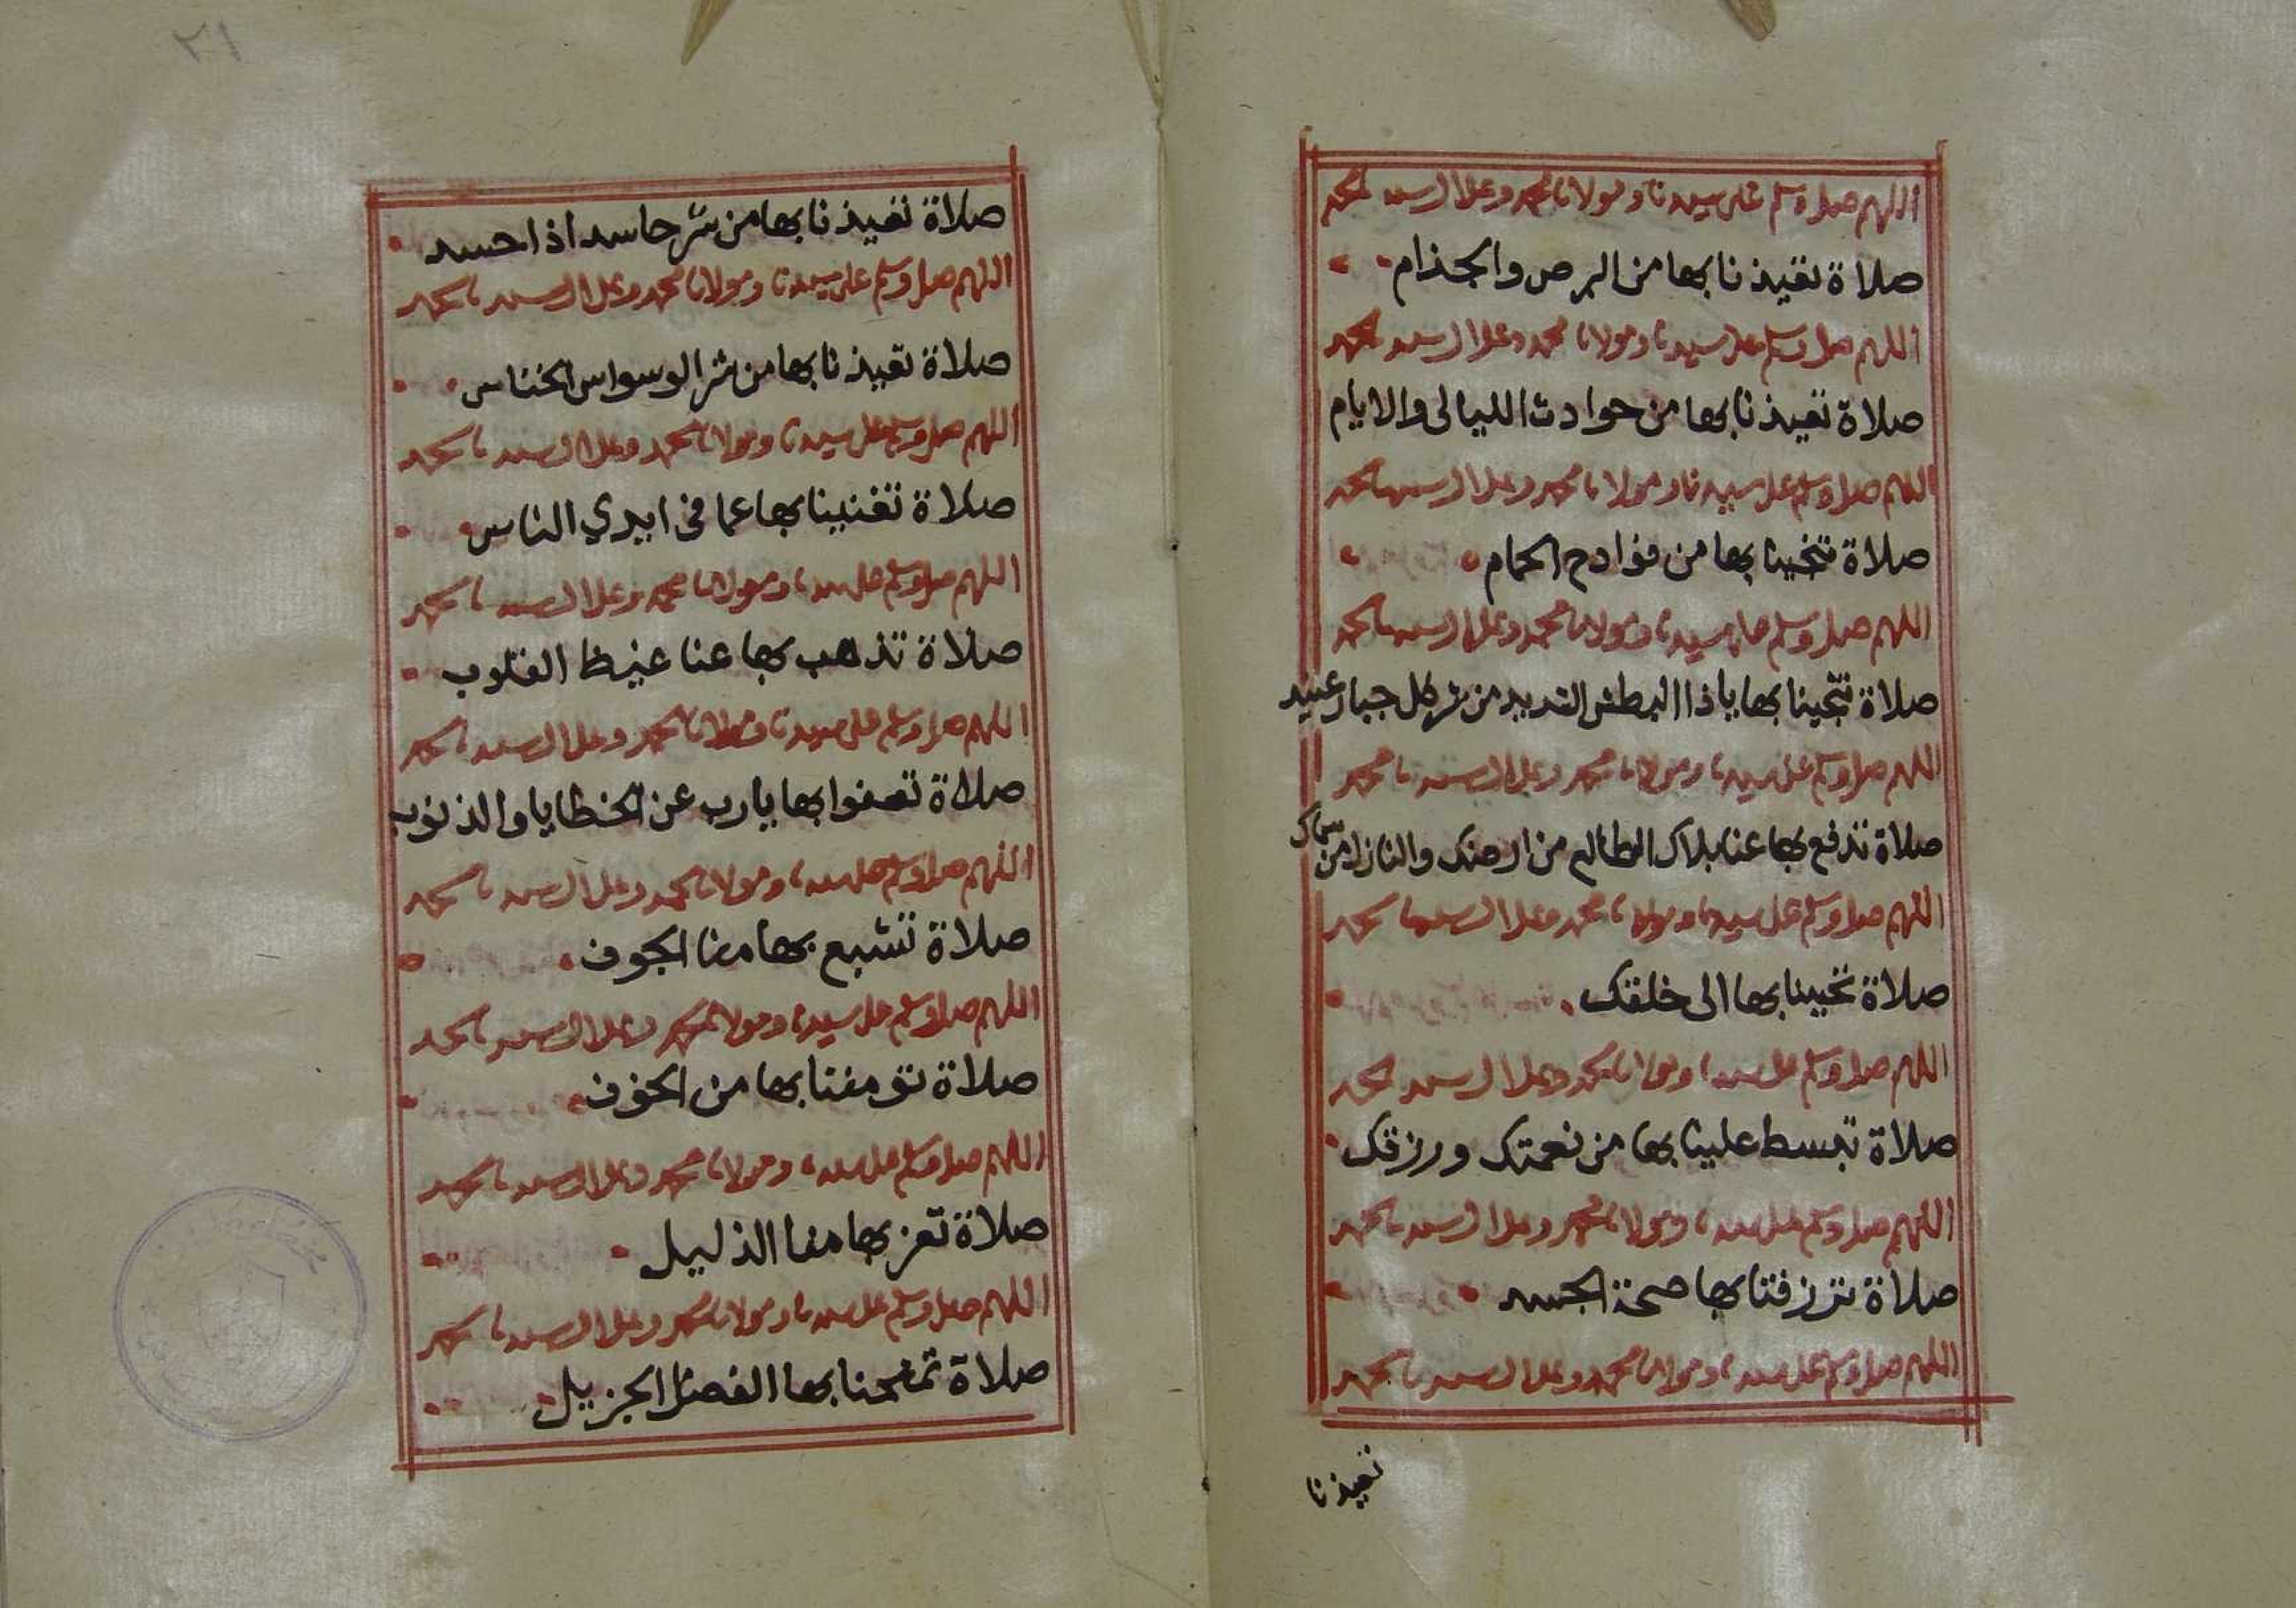 اللهم صل وسلم على سيدنا ومولانا محمد وعلى ال سيدنا محمد
صلاة تعيذنا بها من البرص والجذام
اللهم صل وسلم على سيدنا ومولانا محمد وعلى ال سيدنا محمد
صلاة تعيذنا بها من حوادث الليالى والايام
اللهم صل وسلم على سيدنا ومولانا محمد وعلى ال سيدنا محمد
صلاة تنجينا بها من فوادح الحمام
اللهم صل وسلم على سيدنا ومولانا محمد وعلى ال سيدنا محمد
صلاة تنجينا بها ياذا البطش الشديد من شر كل جبار عنيد
اللهم صل وسلم على سيدنا ومولانا محمد وعلى ال سيدنا محمد
صلاة تدفع بها عنا بلاك الطالع من ارضك والنازل من سماك
اللهم صل وسلم على سيدنا ومولانا محمد وعلى ال سيدنا محمد
صلاة تحببنا بها الى خلقك
اللهم صل وسلم على سيدنا ومولانا محمد وعلى ال سيدنا محمد
صلاة تبسط علينا بها من نعمتك ورزقك
اللهم صل وسلم على سيدنا ومولانا محمد وعلى ال سيدنا محمد
صلاة ترزقنا بها صحة الجسد
اللهم صل وسلم على سيدنا ومولانا محمد وعلى ال سيدنا محمد
تعيذنا
٢١
صلاة تعيذنا بها من شر حاسد اذا حسد
اللهم صل وسلم على سيدنا ومولانا محمد وعلى ال سيدنا محمد
صلاة تعيذنا بها من شر الوسواس الخناس
اللهم صل وسلم على سيدنا ومولانا محمد وعلى ال سيدنا محمد
صلاة تغنينا بها عما فى ايدي الناس
اللهم صل وسلم على سيدنا ومولانا محمد وعلى ال سيدنا محمد
صلاة تذهب بها عنا غيظ القلوب
اللهم صل وسلم على سيدنا ومولانا محمد وعلى ال سيدنا محمد
صلاة تعفوا بها يارب عن الخطايا والذنوب
اللهم صل وسلم على سيدنا ومولانا محمد وعلى ال سيدنا محمد
صلاة تشبع بها منا الجوف
اللهم صل وسلم على سيدنا ومولانا محمد وعلى ال سيدنا محمد
صلاة تؤمننا بها من الخوف
اللهم صل وسلم على سيدنا ومولانا محمد وعلى ال سيدنا محمد
صلاة تعز بها منا الذليل
اللهم صل وسلم على سيدنا ومولانا محمد وعلى ال سيدنا محمد
صلاة تمنحنا بها الفضل الجزيل